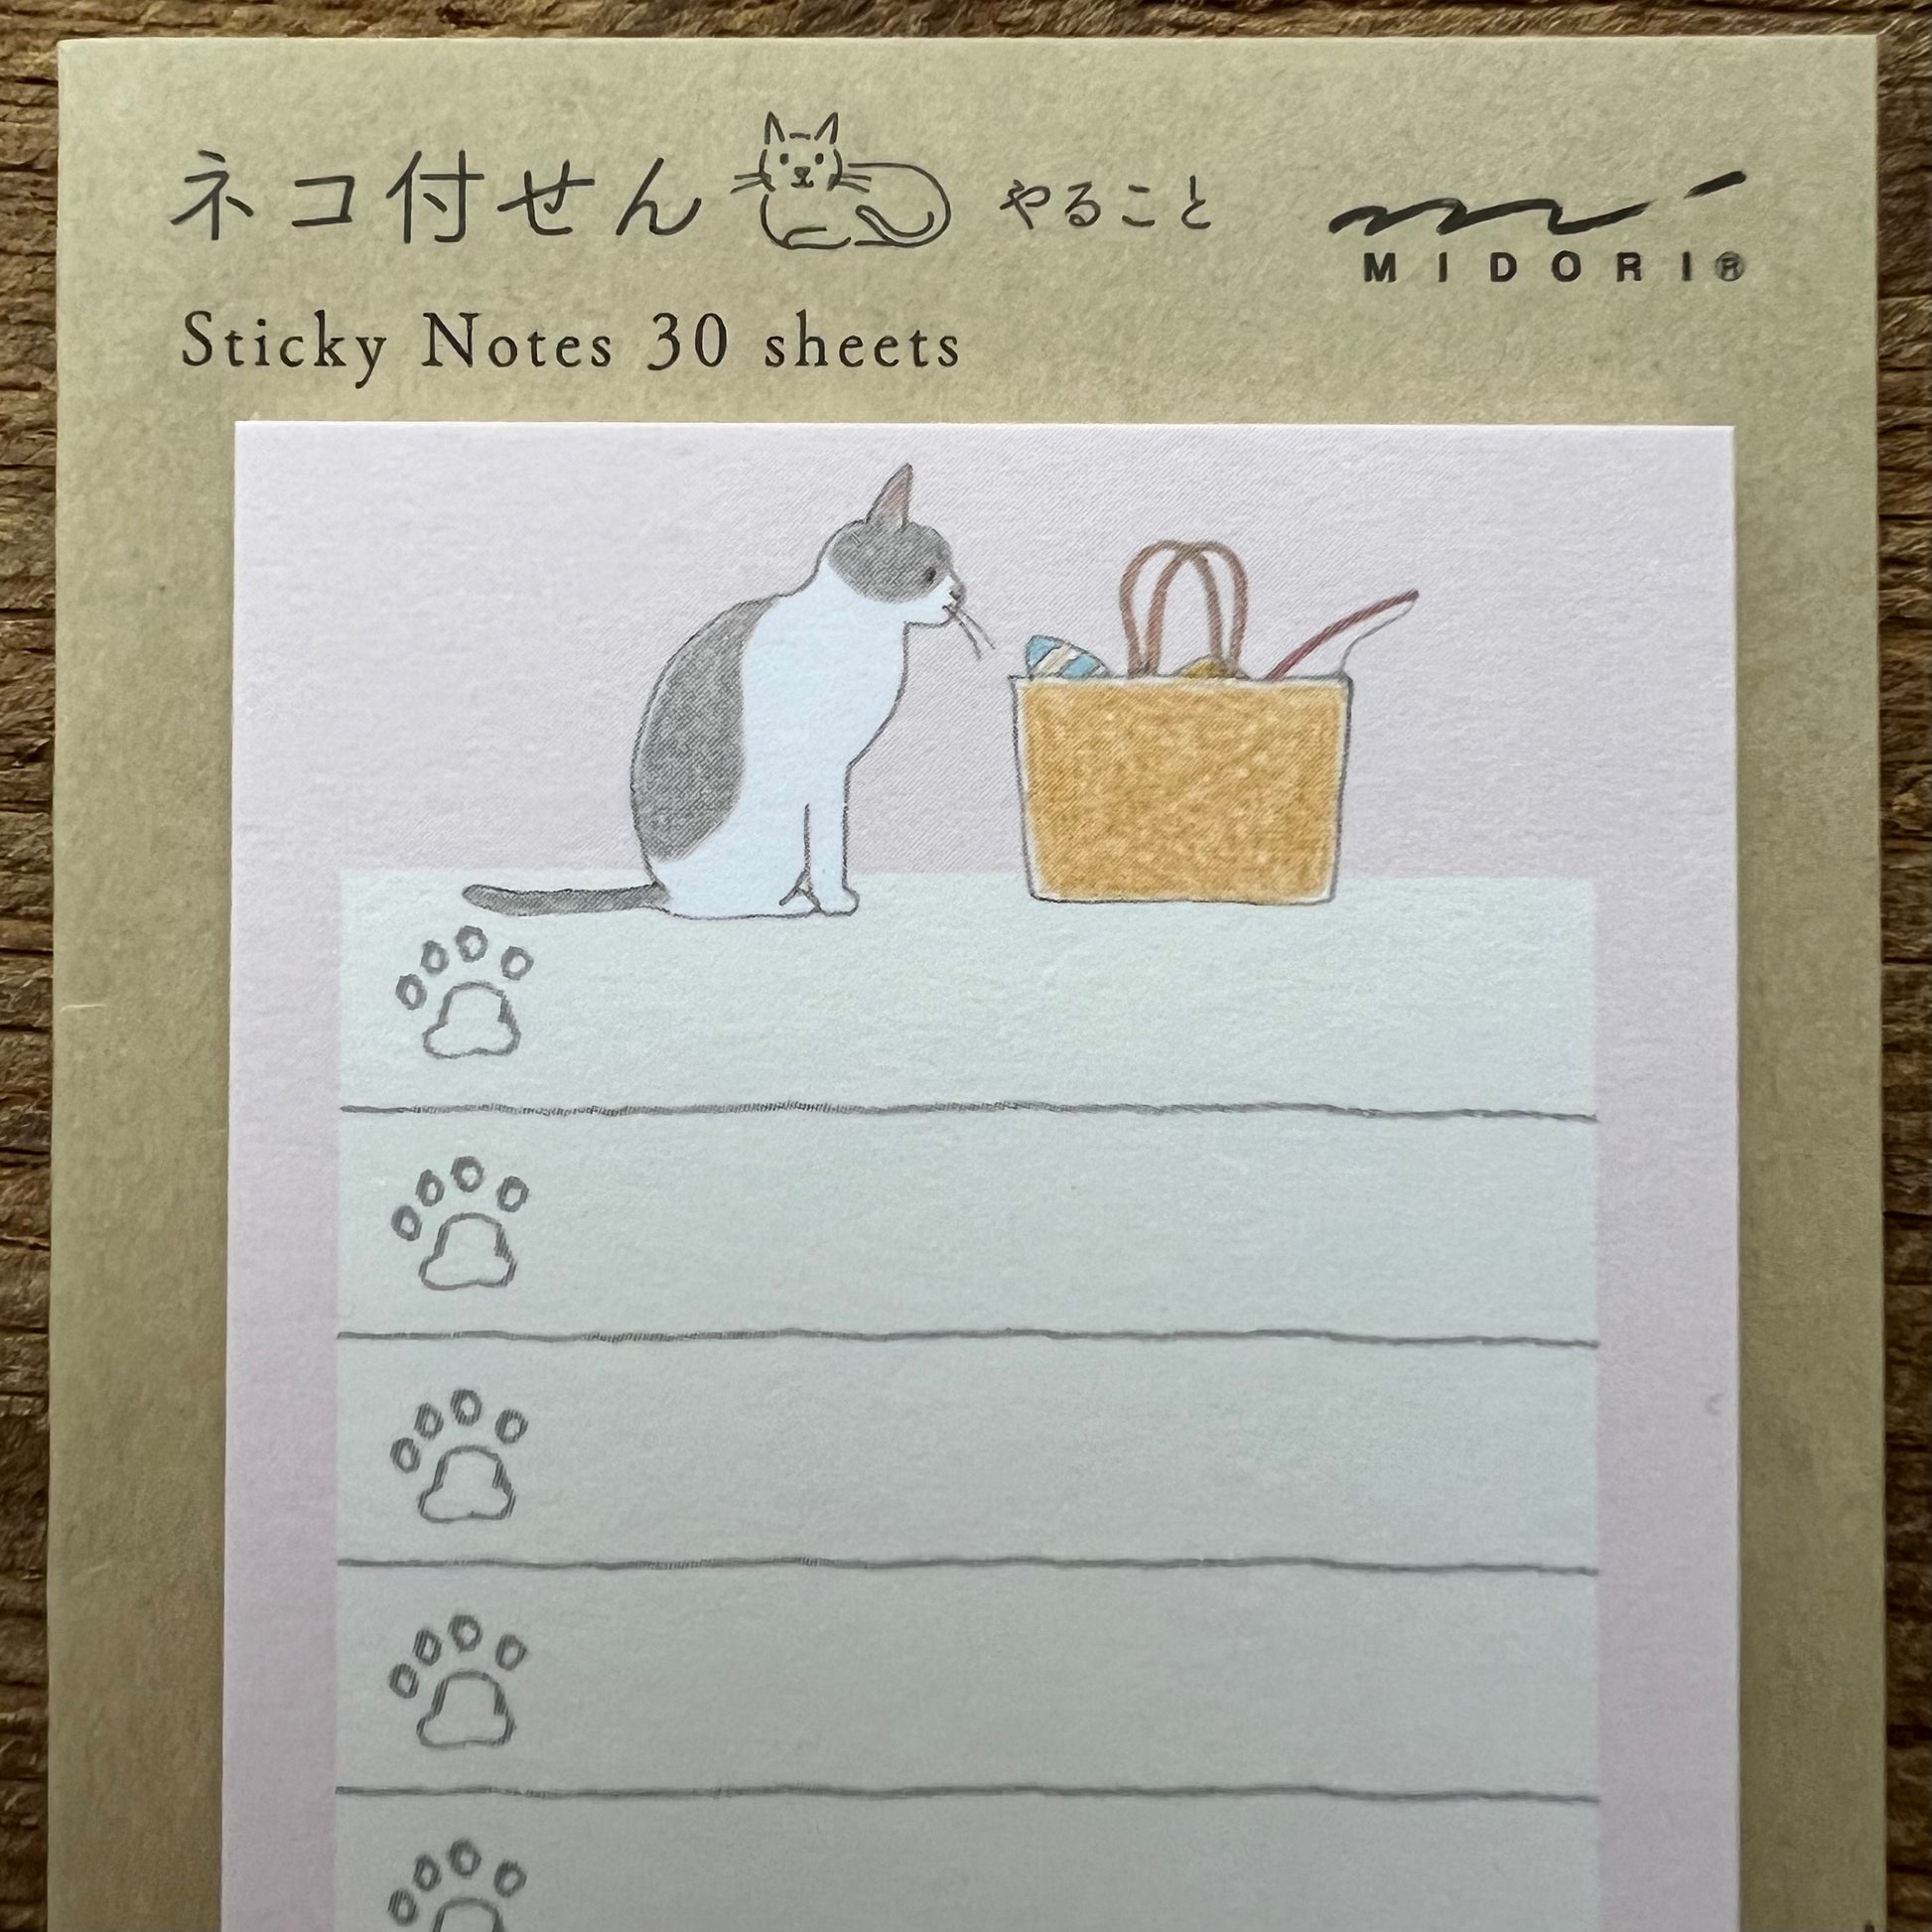 ネコ付せん やること
MIDORI®
Sticky Notes 30 sheets